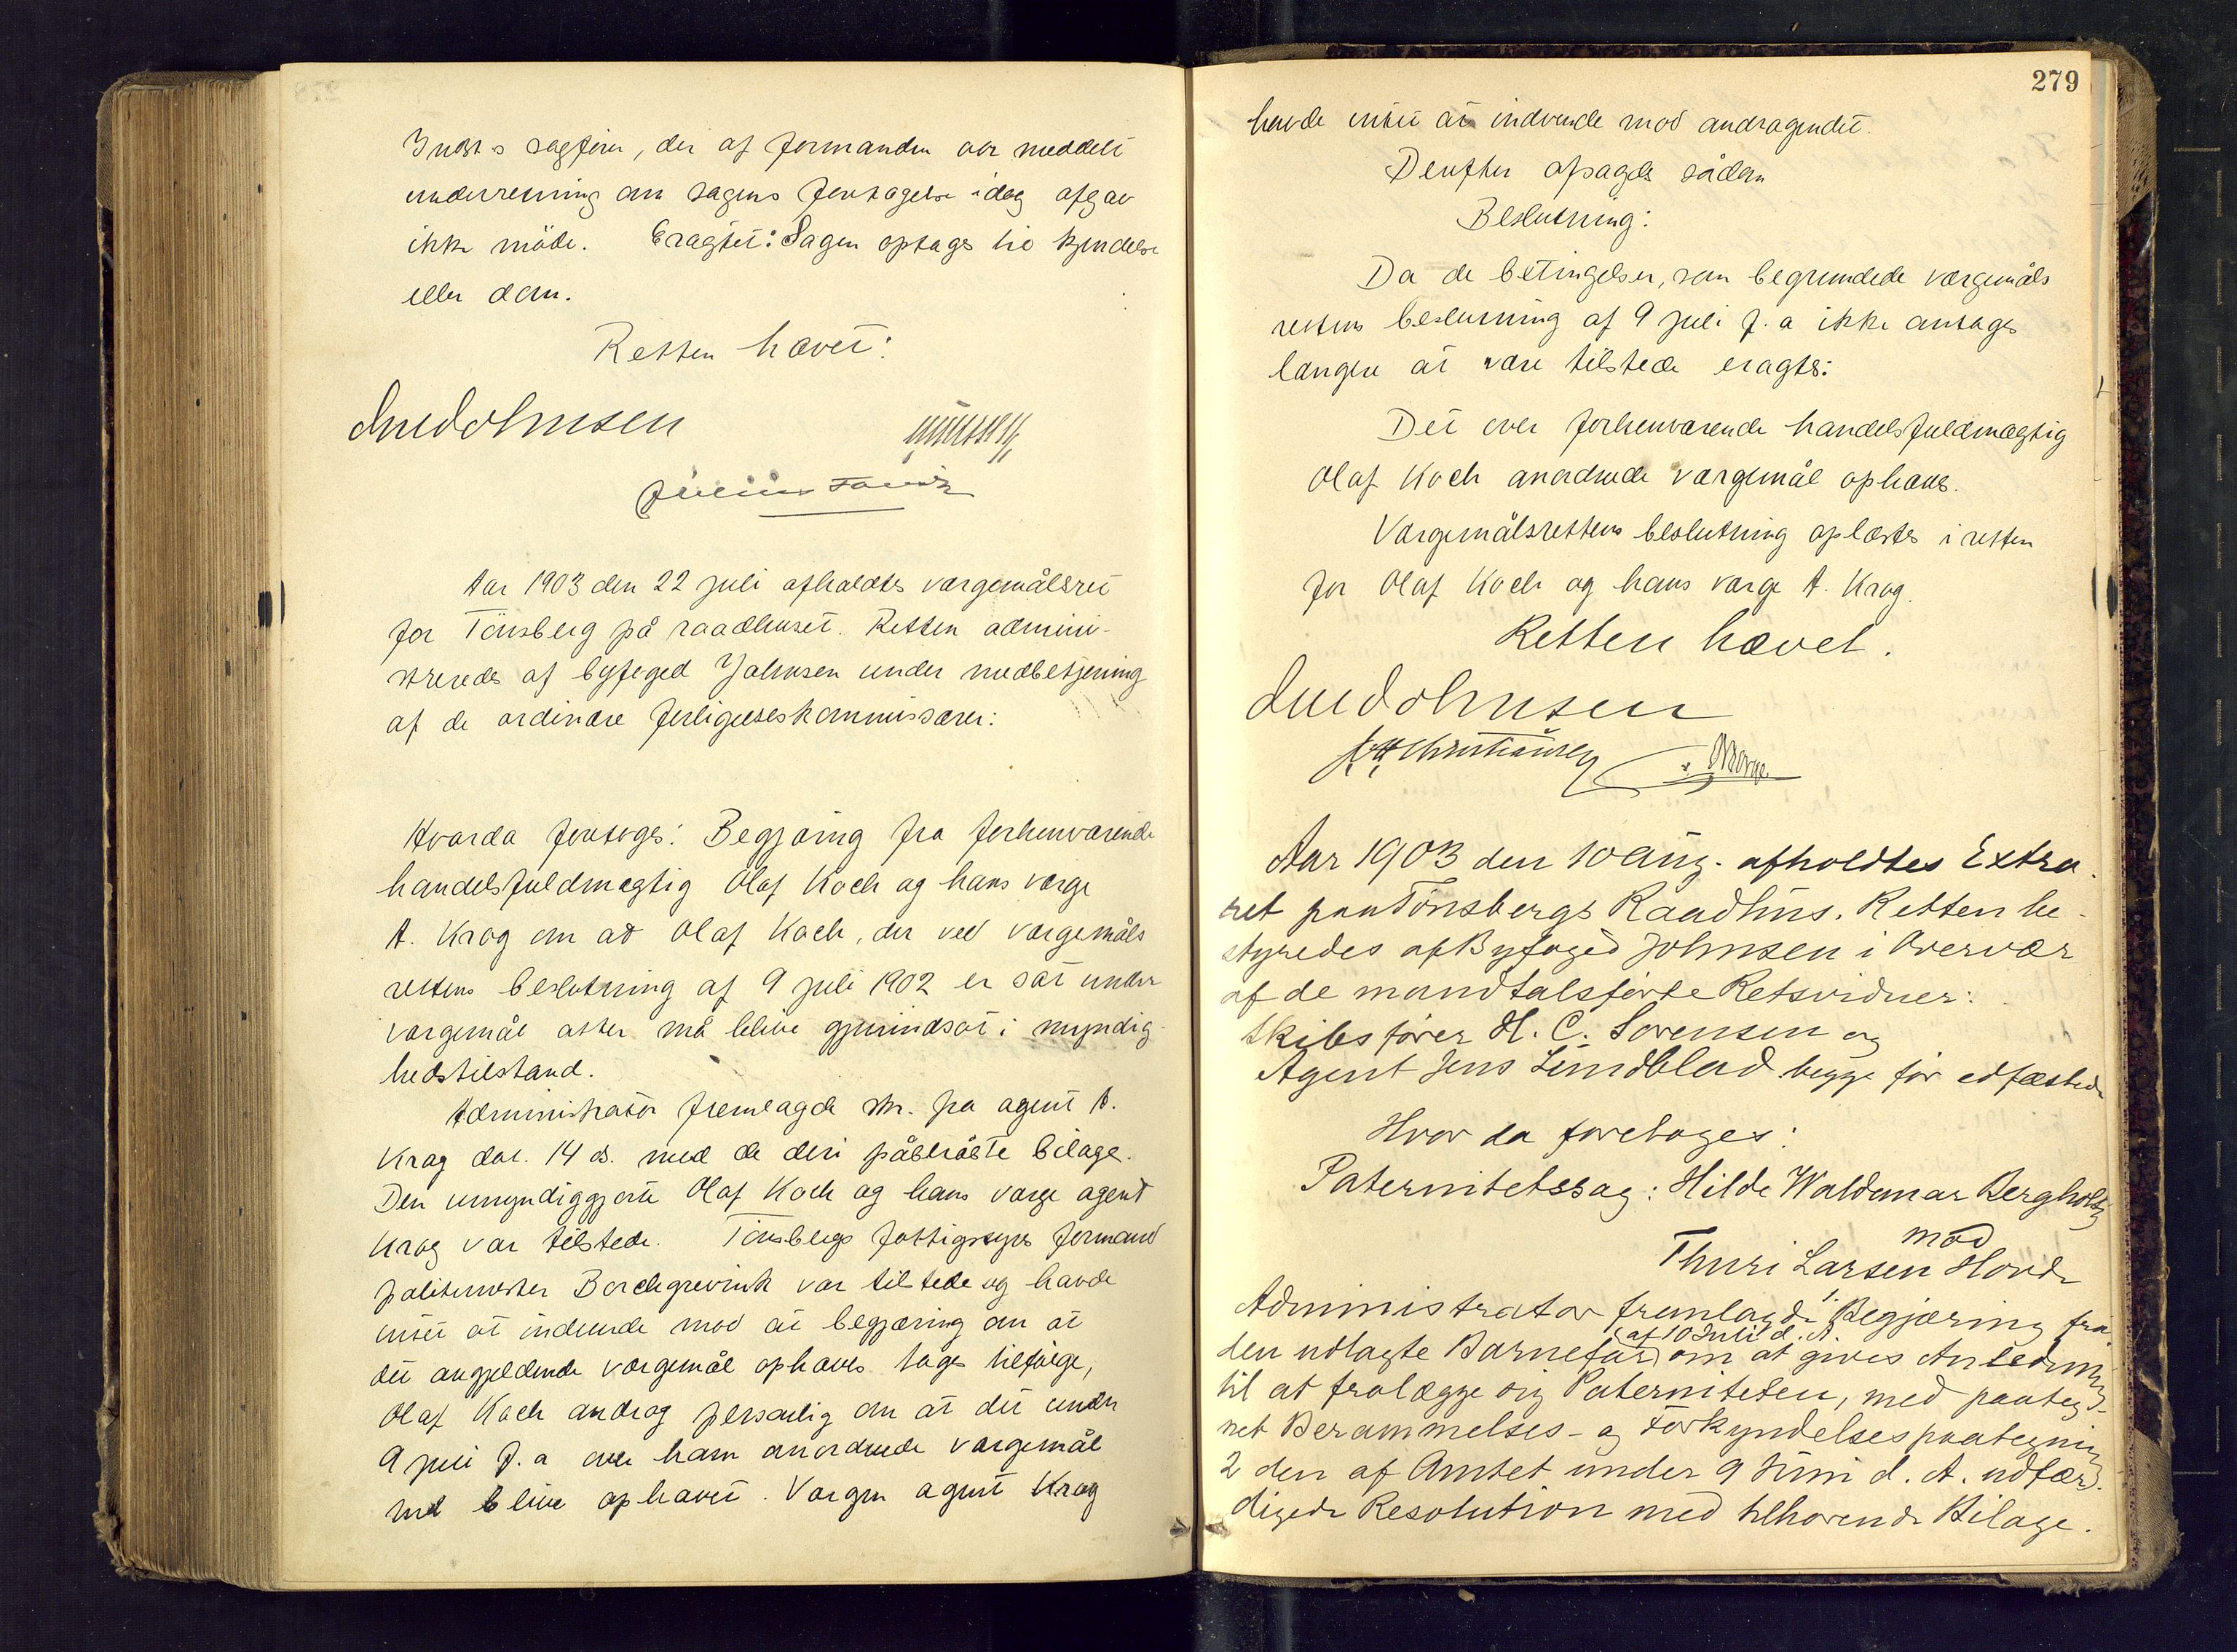 Indst.s sagfører, der af formanden var meddelt
underretning om sagens foretagelse idag afgav
ikke møde. Eragtet: Sagen optages til kjendelse
eller dom.
Retten hævet:
Julius
Aar 1903 den 22 juli afholdtes værgemålsret
for Tönsberg på raadhuset. Retten admini-
streredes af byfoged Johnsen under medbetjening
af de ordinære forligelseskommissærer:
Hvorda foretoges: Begjæring fra forhenværende
handelsfuldmægtig Olaf Koch og hans værge
A. Krog om at Olaf Koch, der ved værgemåls
rettens beslutning af 9 juli 1902 er sat under
værgemål atter må blive gjenindsat i myndig-
hedstilstand.
Administrator fremlagde skr. fra agent A.
Krog dat. 14 ds. med de deri påberåbte bilage.
Den umyndiggjorte Olaf Koch og hans værge agent
Krog var tilstede. Tönsbergs fattigstyres formand
politimester Borchgrevink var tilstede og havde
intet at indvende mod at begjæring om at
det angjeldende værgemål ophæves tages tilfølge,
Olaf Koch androg personlig om at det under
9 juli f. a over ham anordnede værgemål
må blive ophævet. Værgen agent Krog
279
havde intet at indvende mod andragendet.
Derefter afsagdes sådan
Beslutning:
Da de betingelser, som begrundede værgemåls
rettens beslutning af 9 juli f. a ikke antages
længere at være tilstede eragtes:
Det over forhenværende handelsfuldmægtig
Olaf Koch anordnede værgemål ophæves.
Værgemålsrettens beslutning oplæstes i retten
for Olaf Koch og hans værge A. Krog.
Retten hævet.
Christiansen
Aar 1903 den 10 Aug. afholdtes Extra
ret paa Tönsbergs Raadhus. Retten be-
styredes af Byfoged Johnsen i Overvær
af de mandtalsførte Retsvidner:
Skibsfører H. C. Sørensen og
Agent Jens Lundblad begge før edfæstede
Hvor da foretoges:
Paternitetssag: Hilde Waldemar Bergholtz
mod
Thuri Larsen Hovde
Administrator fremlagde 1. Begjæring fra
(af 10 Juli d. A.
den udlagte Barnefar) om at gives Anledning
til at fralægge sig Paterniteten, med paateg-
net Berammelses- og Forkyndelsespaategning
2 den af Amtet under 9 Juni d. A. udfær-
digede Resolution med tilhørende Bilage.